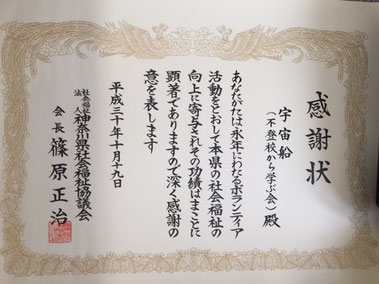 感謝状
宇宙船
(不登校から学ぶ会) 殿
あなたがたは永年にわたるボランティア
活動をとおして本県の社会福祉の
向上に寄与されその功績はまことに
顕著でありますので深く感謝の
意を表します
平成三十年十月十九日
社会福祉法人 神奈川県社会福祉協議会
会長 篠原正治